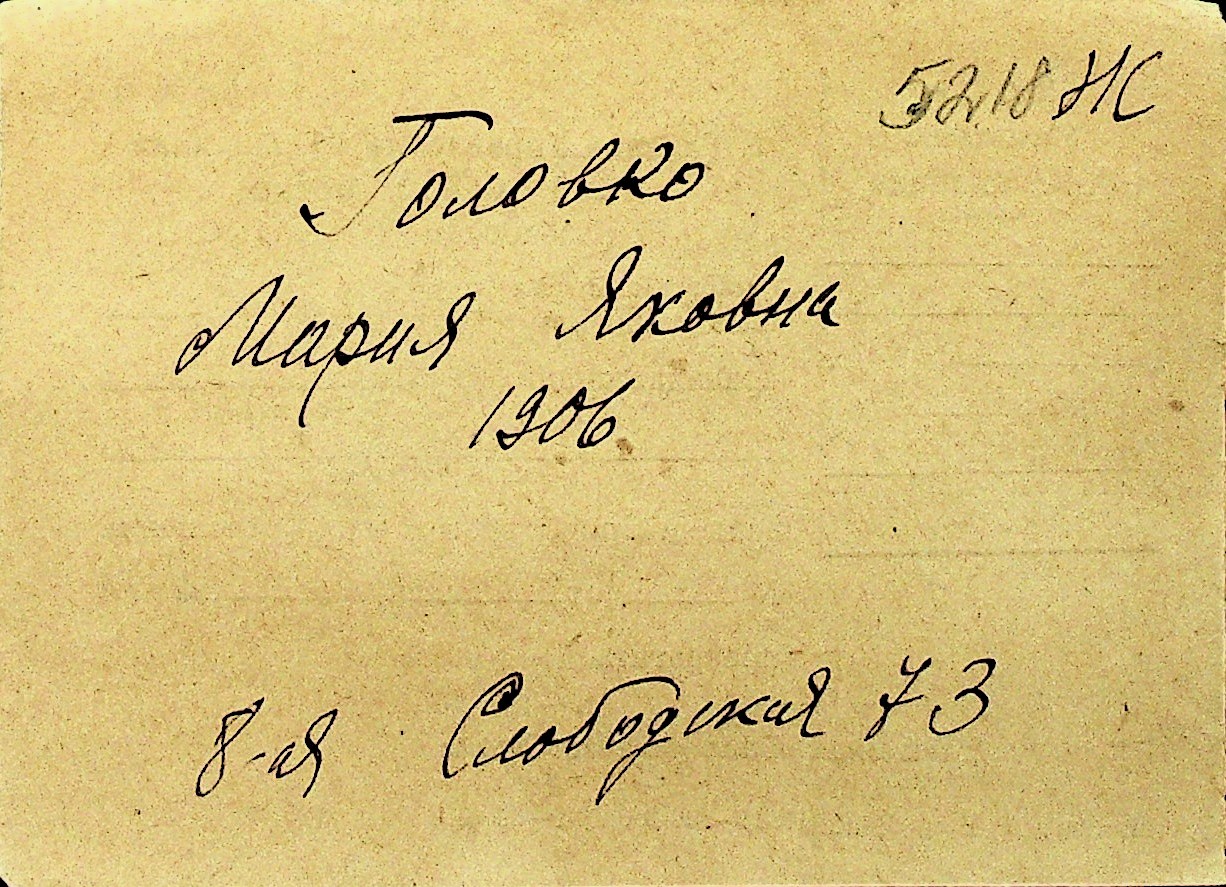 5218 Ж
Головко
Мария Яковна
1906
8-ая Слободская 73